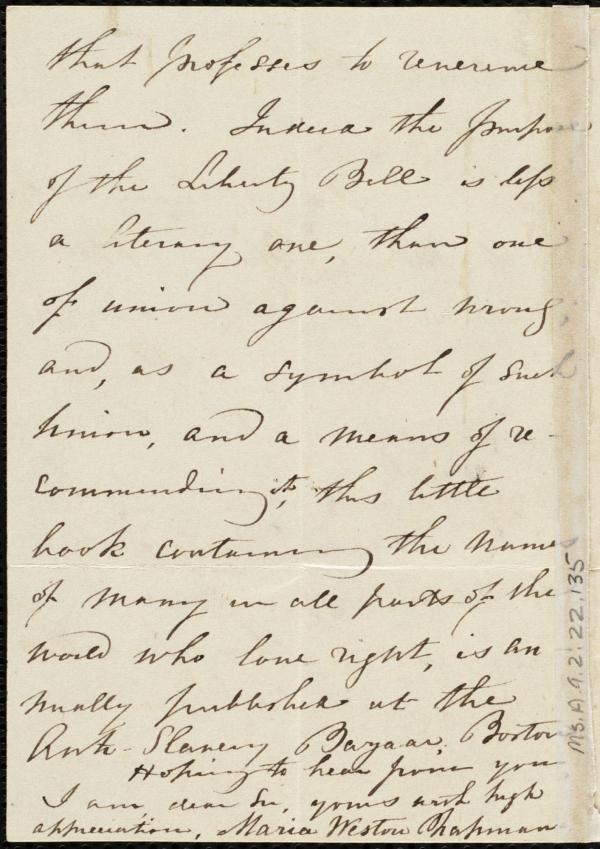 that professes to reverence
them. Indeed the purpose
of the Liberty Bell is less
a literary one, than one
of union against wrong;
and, as a symbol of such
Union, and a means of re-
commending it, this little
book containing the names
of many in all parts of the
world who love right, is an
nually published at the
Anti-Slavery Bazaar, Boston
Hoping to hear from you
I am, dear Sir, yours with high
appreciation, Maria Weston Chapman
Ms.A.9.2:22.135